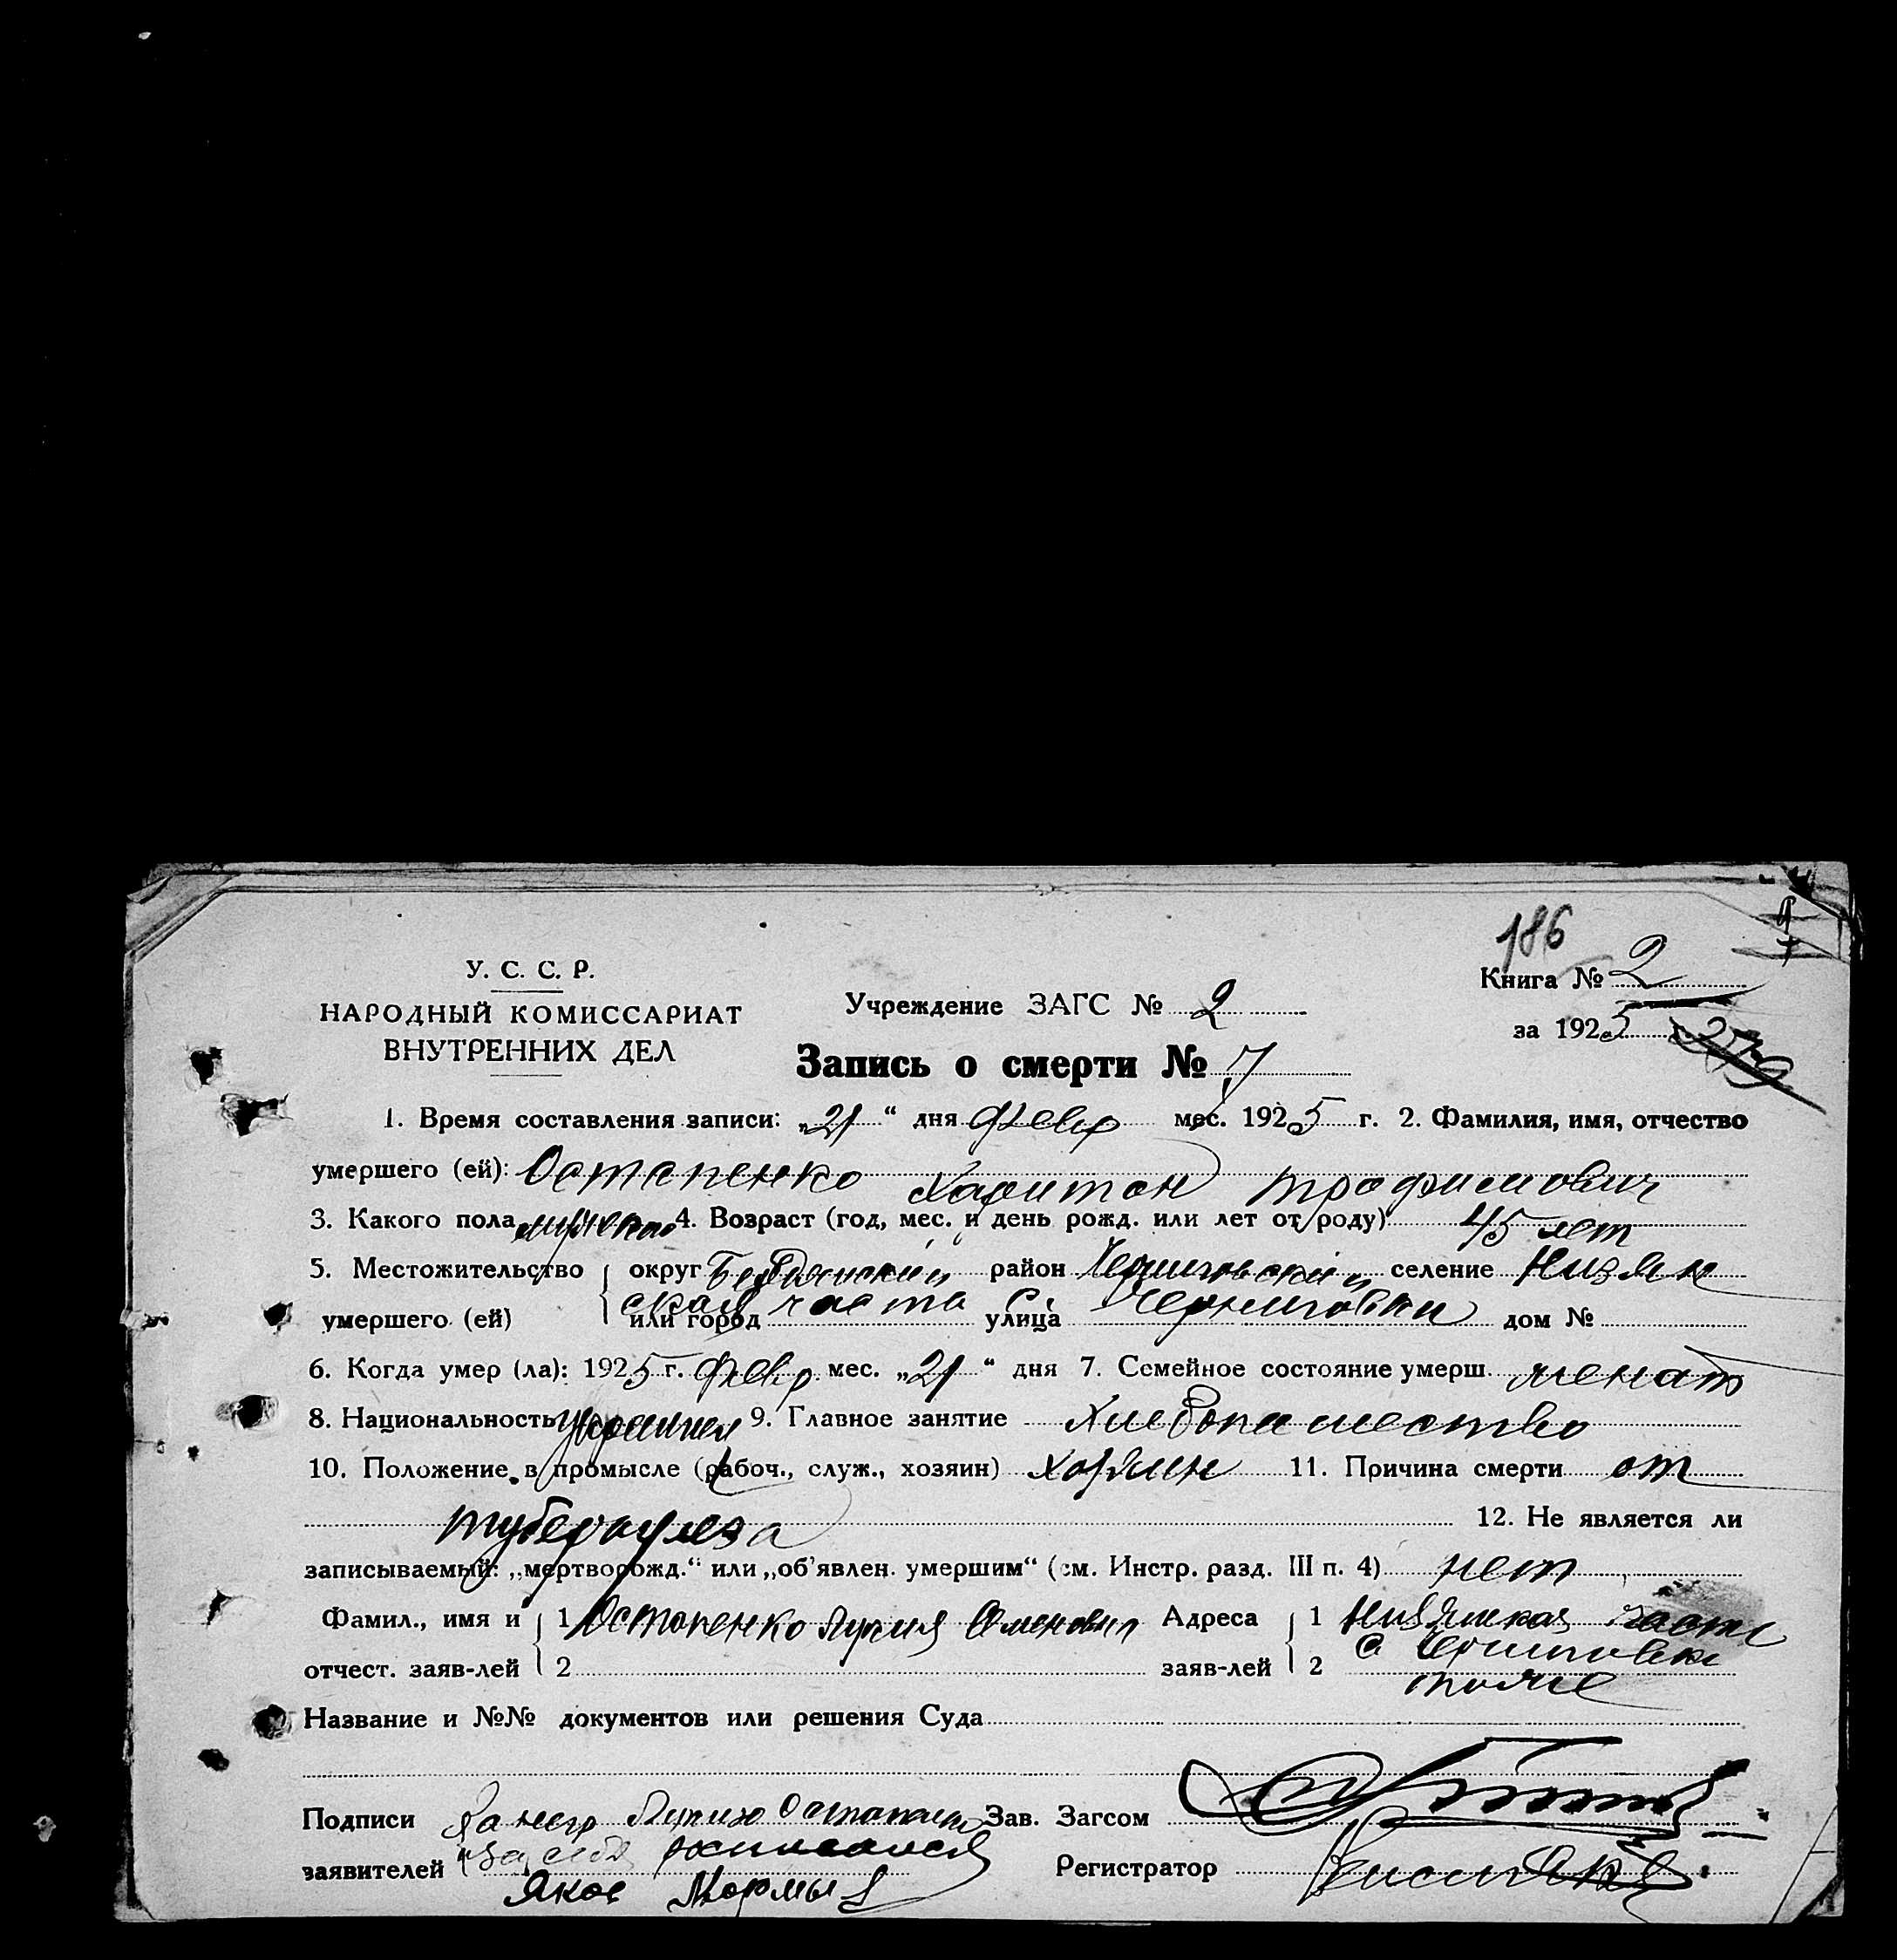 186
У. С. С. Р.
НАРОДНЫЙ КОМИССАРИАТ
ВНУТРЕННИХ ДЕЛ
Книга № 2
за 1925
Учреждение ЗАГС № 2
Запись о смерти № 7
1. Время составления записи: „21“ дня февр мес. 1925 г. 2. Фамилия, имя, отчество
умершего (ей): Остапенко Харитон Трофимович
3. Какого пола мужеско 4. Возраст (год, мес. и день рожд. или лет от роду) 45 лет
5. Местожительство округ Бердянский район Черниговский селение Низян
ская часть с. Черниговки
умершего (ей) или город улица дом №
6. Когда умер (ла): 1925 г. февр. мес. „21“ дня 7. Семейное состояние умерш. женат
8. Национальность украинец 9. Главное занятие хлебопашество
10. Положение в промысле (рабоч., служ., хозяин) хозяин 11. Причина смерти от
туберкулеза 12. Не является ли
записываемый: „мертворожд.“ или „об’явлен. умершим“ (см. Инстр. разд. III п. 4) нет
Фамил., имя и 1 Остапенко Лукия Адреса 1 Низянская часть
с Черниговки
отчест. заяв-лей 2 заяв-лей 2 тоже
Название и №№ документов или решения Суда
Подписи За негр Лукию Остапенко Зав. Загсом
заявителей и за себя расписался Регистратор
Яков